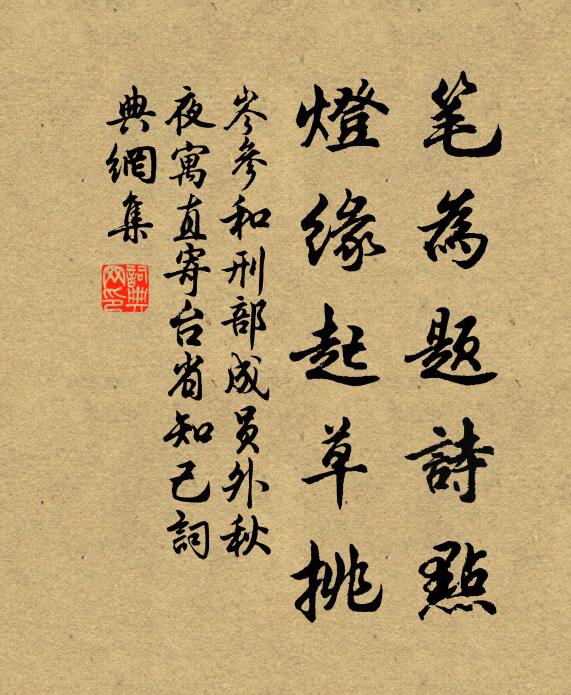 笔為题詩點
燈緣起草挑
岑參和刑部成員外秋
夜寓直寄台省知己詞
典網集
詞典网印